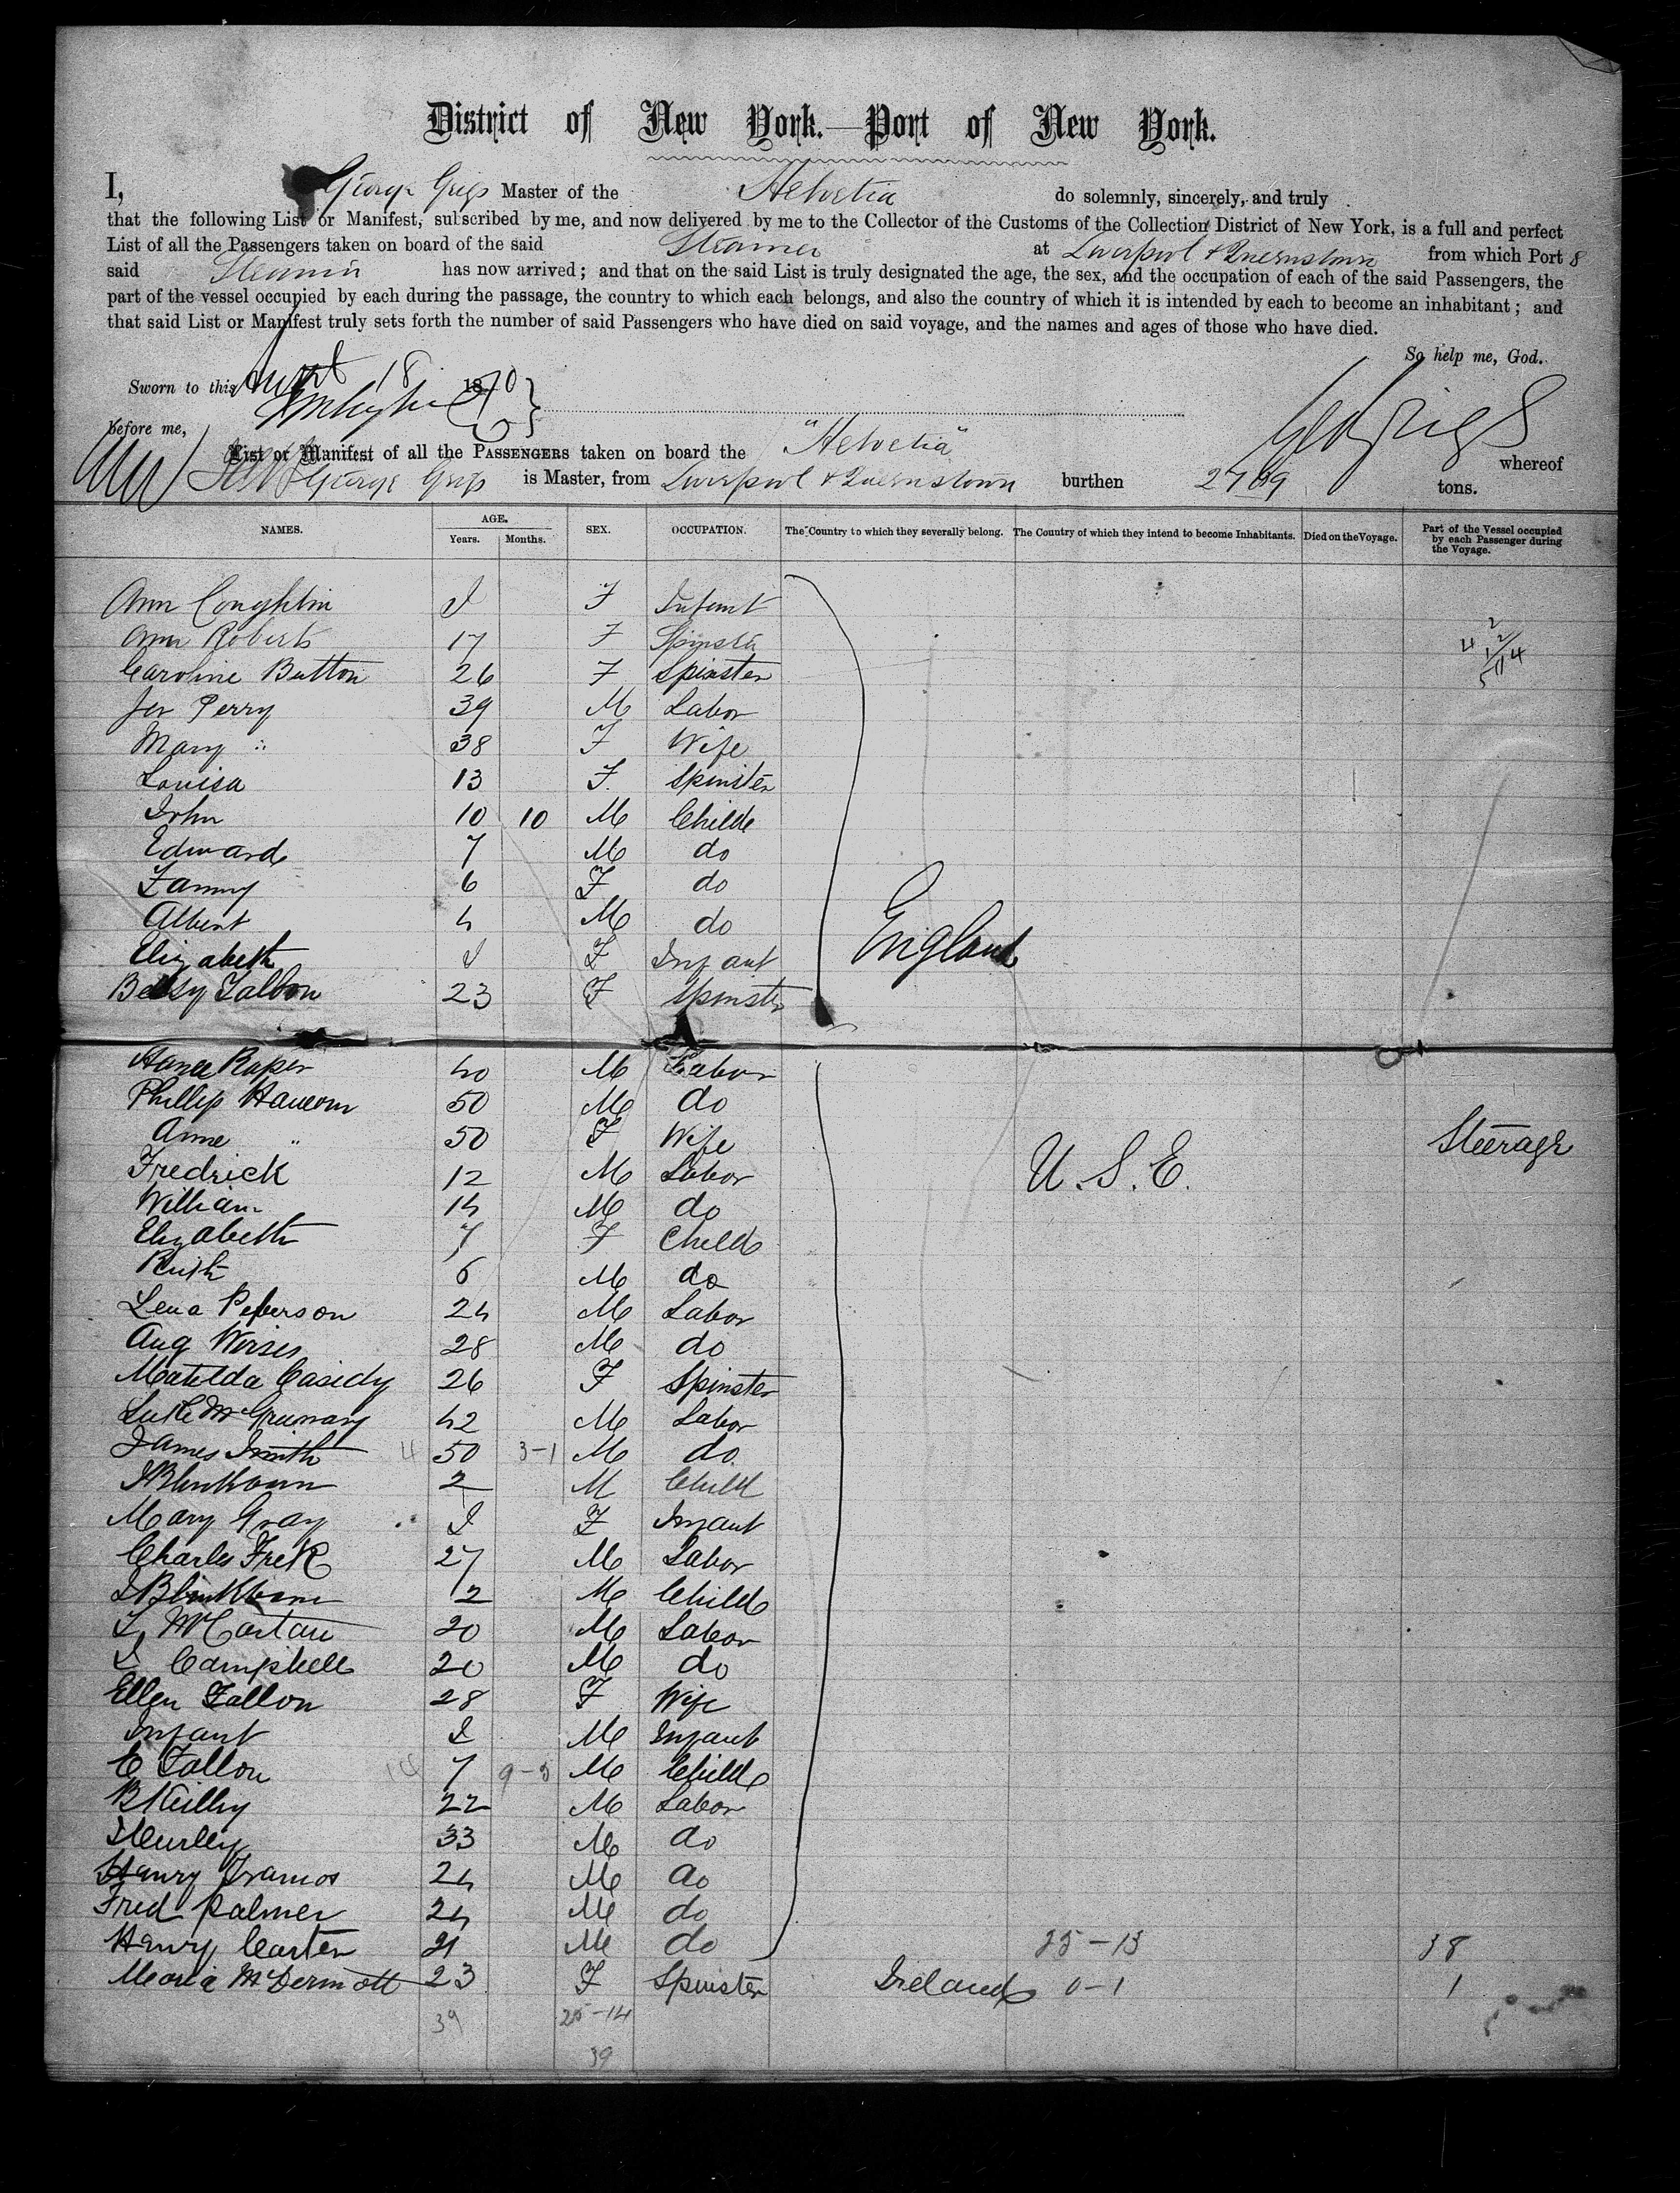 District of New York.—Port of New York.
I, George Grigs Master of the Helvetia do solemnly, sincerely, and truly
that the following List or Manifest, subscribed by me, and now delivered by me to the Collector of the Customs of the Collection District of New York, is a full and perfect
List of all the Passengers taken on board of the said Steamer at Liverpool & Queenstown from which Port 8
said Steamer has now arrived; and that on the said List is truly designated the age, the sex, and the occupation of each of the said Passengers, the
part of the vessel occupied by each during the passage, the country to which each belongs, and also the country of which it is intended by each to become an inhabitant; and
that said List or Manifest truly sets forth the number of said Passengers who have died on said voyage, and the names and ages of those who have died.
So help me, God.
Sworn to this 18 1870
before me,
Geo Grigs
List or Manifest of all the PASSENGERS taken on board the "Helvetia" whereof
George Grigs is Master, from Liverpool & Queenstown burthen tons.
NAMES. AGE. Years. Months. SEX. OCCUPATION. The Country to which they severally belong. The Country of which they intend to become Inhabitants. Died on the Voyage. Part of the Vessel occupied by each Passenger during the Voyage.
Ann Coughlin I F Infant
Ann Roberts 17 F Spinster
Caroline Button 26 F Spinster
Perry 39 M Labor
Mary " 38 F Wife
Louisa 13 F. Spinster
John 10 10 M Child
Edward 7 M do
Fanny 6 F do
Albert 4 M do
England
Elizabeth I F Infant
Betsy 23 F Spinster
Raper 40 M Labor
Phillip 50 M do
Anne " 50 F Wife
Steerage
Fredrick 12 M Labor
U.S.E.
William 14 M do
Elizabeth 7 F Child
Ruth 6 M do
Lena Peterson 24 M Labor
Aug 28 M do
Matilda Casidy 26 F Spinster
Luke 42 M Labor
James Smith 4 50 3-1 M do
2 M Child
Mary Gray I F Infant
Charles 27 M Labor
2 M Child
McCartan 20 M Labor
Campbell 20 M do
Ellen Fallon 28 F Wife
Infant I M Infant
C Fallon 7 9-5 M Child
B 22 M Labor
33 M do
Henry 24 M do
Fred Palmer 24 M do
Henry Carter 21 M do 25-13 38
Maria McDermott 23 F Spinster Ireland 0-1 1
39 25-14
39